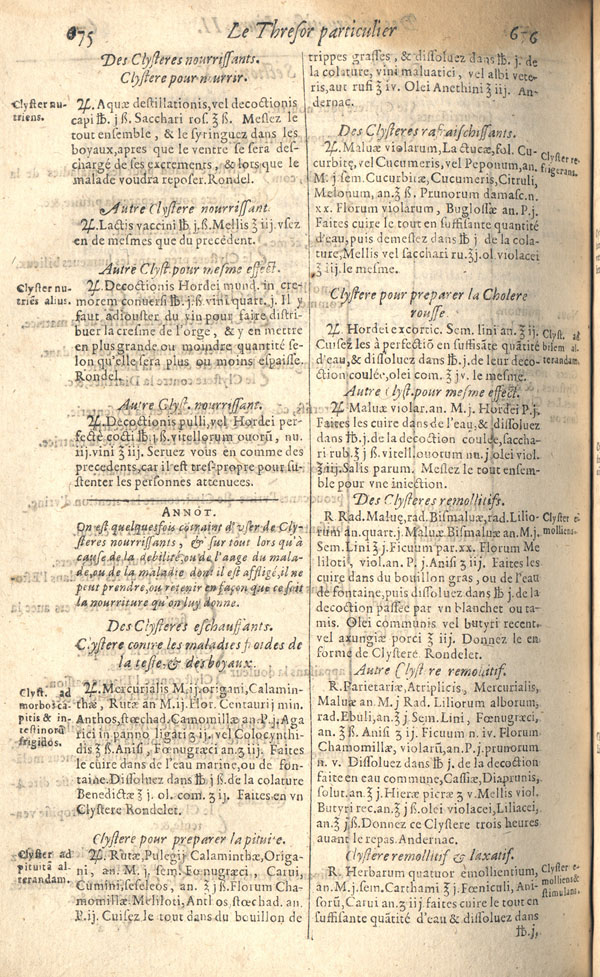 675
Le Thresor particulier
676
Des Clysteres nourrissants.
Clystere pour nourrir.
Clyster nu-
triens.
♃. Aquæ destillationis, vel decoctionis
capi ℔. j ß. Sacchari ros. ℥ ß. Meslez le
tout ensemble, & le syringuez dans les
boyaux, apres que le ventre se sera des-
chargé de ses excrements, & lors que le
malade voudra reposer. Rondel.
Autre Clystere nourrissant.
♃. Lactis vaccini ℔ j. ß. Mellis ℥ iij. vsez
en de mesmes que du precedent.
Autre Clyst. pour mesme effect.
Clyster nu-
triés alius.
♃. Decoctionis Hordei mund. in cre-
morem conuersi ℔. j. ß vini quart. j. Il y
faut adiouster du vin pour faire distri-
buer la cresme de l'orge, & y en mettre
en plus grande ou moindre quantité se-
lon qu'elle sera plus ou moins espaisse.
Rondel.
Autre Clyst. nourrissant.
♃. Decoctionis pulli, vel Hordei per-
fectè cocti ℔ j. ß. vitellorum ouorū, nu.
iij. vini ℥ iij. Seruez vous en comme des
precedents, car il est tres-propre pour su-
stenter les personnes attenuees.
ANNOT.
On est quelquesfois cōtraint d'vser de Cly-
steres nourrissants, & sur tout lors qu'à
cause de la debilité, ou de l'aage du mala-
de, ou de la maladie dont il est affligé, il ne
peut prendre, ou retenir en façon que ce soit
la nourriture qu'on luy donne.
Des Clysteres eschauffants.
Clystere contre les maladies froides de
la teste & des boyaux.
Clyst. ad
morbos ca-
pitis & in-
testinorū
frigidos.
♃. Mercurialis M. ij. origani, Calamin-
thæ, Rutæ an M. ij. Flor. Centaurij min.
Anthos, stœchad. Camomillæ an. P. j. Aga
rici in panno ligati ℥ ij. vel Colocynthi-
dis ℥ ß. Anisi, Fœnugræci an. ℥ iij. Faites
le cuire dans de l'eau marine, ou de fon-
taine. Dissoluez dans ℔ j ß. de la colature
Benedictæ ℥ j. ol. com. ℥ iij. Faites en vn
Clystere Rondelet.
Clystere pour preparer la pituite.
Clyster ad
pituitā al-
terandam.
♃. Rutæ, Pulegij Calaminthæ, Origa-
ni, an. M. j. sem. Fœnugræci, Carui,
Cumini, seseleos, an. ℥ j ß. Florum Cha-
momillæ Meliloti, Anthos stœchad. an.
P. ij. Cuisez le tout dans du bouillon de
trippes grasses, & dissoluez dans ℔. j. de
la colature, vini maluatici, vel albi vete-
ris, aut rufi ℥ iv. Olei Anethini ℥ iij. An-
dernac.
Des Clysteres rafraischissants.
Clyster re-
frigerans.
♃. Maluæ violarum, Lactucæ, fol. Cu-
curbitę, vel Cucumeris, vel Peponum, an.
M. j sem. Cucurbitæ, Cucumeris, Citruli,
Melonum, an. ℥ ß. Prunorum damasc. n.
xx. Florum violarum, Buglossæ an. P. j.
Faites cuire le tout en suffisante quantité
d'eau, puis demeslez dans ℔ j de la cola-
ture, Mellis vel sacchari ru. ℥ j. ol violacei
℥ iij. le mesme.
Clystere pour preparer la Cholere
rousse.
Clyst. ad
bilem al-
terandam.
♃. Hordei excortic. Sem. lini an. ℥ ij.
Cuisez les à perfectiō en suffisāte quātité
d'eau, & dissoluez dans ℔. j. de leur deco-
ction coulée, olei com. ℥ jv. le mesme.
Autre Clyst. pour mesme effect.
♃. Maluæ violar. an. M. j. Hordei P. j.
Faites les cuire dans de l'eau, & dissoluez
dans ℔. j. de la decoction coulée, saccha-
ri rub. ℥ j ß. vitell. ouorum nu. j olei viol.
℥ iij. Salis parum. Meslez le tout ensem-
ble pour vne iniection.
Des Clysteres remollitifs.
Clyster e-
molliens.
R Rad. Maluę, rad. Bismaluæ, rad. Lilio-
rum an. quart. j. Maluæ Bismaluæ an. M. j.
Sem. Lini ℥ j. Ficuum par. xx. Florum Me
liloti, viol. an. P. j. Anisi ℥ ij. Faites les
cuire dans du bouillon gras, ou de l'eau
de fontaine, puis dissoluez dans ℔ j. de la
decoction passée par vn blanchet ou ta-
mis. Olei communis vel butyri recent.
vel axungiæ porci ℥ iij. Donnez le en
forme de Clystere Rondelet.
Autre Clystere remolitif.
R. Parietariæ, Atriplicis, Mercurialis,
Maluæ an. M. j Rad. Liliorum alborum,
rad. Ebuli, an ℥ j. Sem. Lini, Fœnugræci,
an. ℥ ß. Anisi ℥ ij. Ficuum n. iv. Florum
Chamomillæ, violarū, an P. j. prunorum
n. v. Dissoluez dans ℔ j. de la decoction
faite en eau commune, Cassiæ, Diaprunis,
solut. an ℥ j. Hieræ picræ ℥ v. Mellis viol.
Butyri rec. an ℥ j ß. olei violacei, Liliacei,
an. ℥ j ß. Donnez ce Clystere trois heures
auant le repas. Andernac.
Clystere remollitif & laxatif.
Clyster e-
molliens &
stimulans.
R. Herbarum quatuor emollientium,
an. M. j. sem. Carthami ℥ j. Fœniculi, Ani-
sorū, Carui an. ℥ iij faites cuire le tout en
suffisante quātité d'eau & dissoluez dans
℔. j.